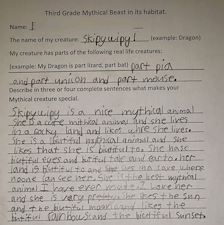 Third Grade Mythical Beast in its habitat.
Name: I
The name of my creature: Skipywipy! (example: Dragon)
My creature has parts of the following real life creatures:
(example: My Dragon is part lizard, part bat) part pig
and part unicon and part mouse.
Describe in three or four complete sentences what makes your
Mythical creature special.
Skipywipy is a nice mythical animal
She is a cute mithical animal and she lives
in a rocky land and likes whre she lives.
She is a butiful mythical animal and she
likes that she is butiful to. She has
butiful eyes and butiful tale and ears. her
land is butiful to and she lives in a cave where
noone can see her. She is the best mythical
animal I have ever made. I love her
and she is very pretty. She likes the sun
and the butiful moon and likes the
butiful rainbows and the butiful sunsets.